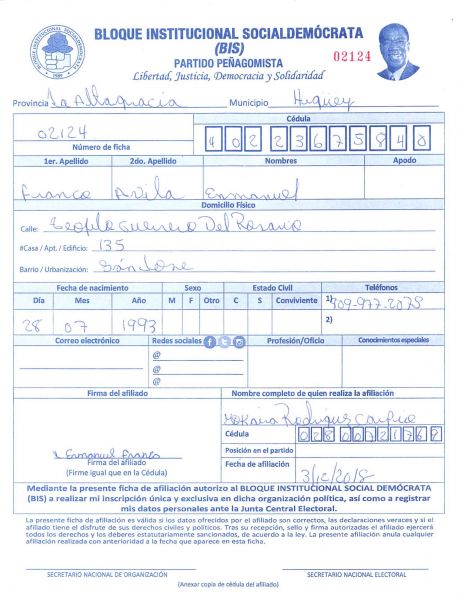 BLOQUE INSTITUCIONAL SOCIALDEMÓCRATA
(BIS)
PARTIDO PEÑAGOMISTA
02124
Libertad, Justicia, Democracia y Solidaridad
BLOQUE INSTITUCIONAL SOCIALDEMOCRATA
Provincia La Altagracia Municipio Higüey
02124
Número de ficha
Cédula
40223675840
1er. Apellido 2do. Apellido Nombres Apodo
Franco Avila Enmanuel
Domicilio Físico
Calle: Teofilo Guerrero Del Rosario
#Casa / Apt. / Edificio: 135
Barrio / Urbanización: San Jose
Fecha de nacimiento Sexo Estado Civil Teléfonos
Día Mes Año M F Otro C S Conviviente 1) 809-977-2075
28 07 1993 2)
Correo electrónico Redes sociales Profesión/Oficio Conocimientos especiales
@
@
@
Firma del afiliado Nombre completo de quien realiza la afiliación
x Enmanuel Franco
Firma del afiliado
(Firme igual que en la Cédula)
Rodriguez
Cédula
Posición en el partido
Fecha de afiliación 3/12/2018
Mediante la presente ficha de afiliación autorizo al BLOQUE INSTITUCIONAL SOCIAL DEMÓCRATA
(BIS) a realizar mi inscripción única y exclusiva en dicha organización política, así como a registrar
mis datos personales ante la Junta Central Electoral.
La presente ficha de afiliación es válida si los datos ofrecidos por el afiliado son correctos, las declaraciones veraces y si el
afiliado tiene el disfrute de sus derechos civiles y políticos. Tras su recepción, sello y firma autorizadas el afiliado ejercerá
todos los derechos y los deberes estatutariamente sancionados, de acuerdo a la ley. La presente afiliación anula cualquier
afiliación realizada con anterioridad a la fecha que aparece en esta ficha.
SECRETARIO NACIONAL DE ORGANIZACIÓN SECRETARIO NACIONAL ELECTORAL
(Anexar copia de cédula del afiliado)